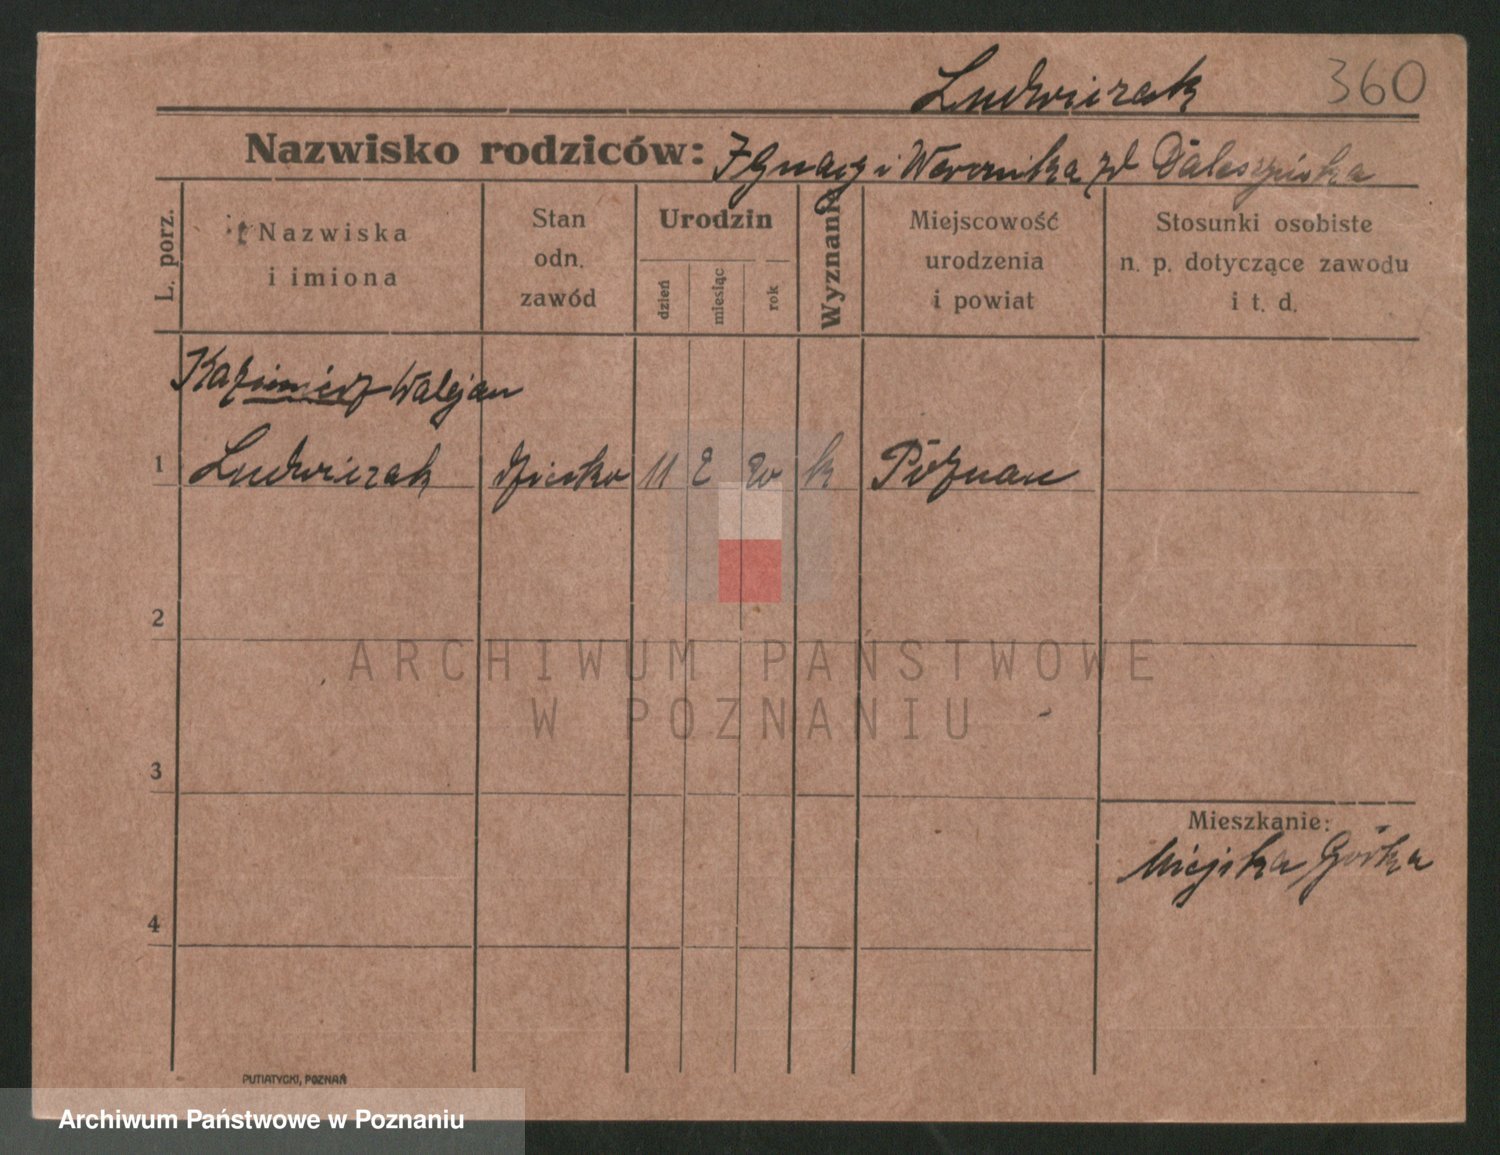 Ludwiczak 360
Nazwisko rodziców: Ignacy i Weronika zd Daleszyńska
L. porz.
Nazwiska
i imiona
Stan
odn.
zawód
Urodzin
dzień
miesiąc
rok
Wyznanie
Miejscowość
urodzenia
i powiat
Stosunki osobiste
n. p. dotyczące zawodu
i t. d.
Kazimierz Walejan
1 Ludwiczak dziecko 11 2 20 k Poznań
2
3
4
Mieszkanie:
Miejska Górka
PUTIATYCKI, POZNAŃ
ARCHIWUM PAŃSTWOWE
W POZNANIU
Archiwum Państwowe w Poznaniu